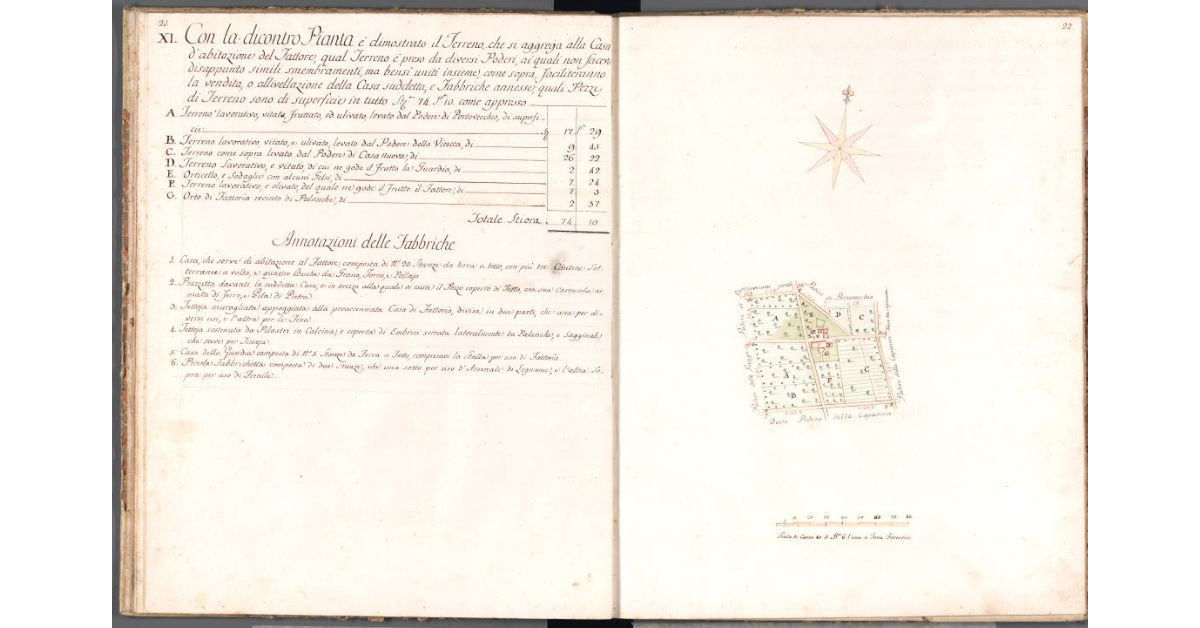 21.
XI. Con la dicontro Pianta è dimostrato il Terreno, che si aggrega alla Casa
d'abitazione del Fattore, qual Terreno è preso da diversi Poderi, ai quali non facendo
disappunto simili smembramenti, ma bensì uniti insieme, come sopra, faciliteranno
la vendita, o allivellazione della Casa suddetta, e Fabbriche annesse; quali Pezzi
di Terreno sono di superficie in tutto 74. 10. come appresso
A. Terreno lavorativo, vitato, fruttato, ed ulivato levato dal Podere di Portovecchio, di superfi-
cie 17 29
B. Terreno lavorativo, vitato, e ulivato, levato dal Podere della Vitetta, di 9 45
C. Terreno come sopra levato dal Podere di Casanuova, di 26 22
D. Terreno Lavorativo, e vitato, di cui ne gode il frutto la Guardia, di 2 42
E. Orticello, e Sodaglie con alcuni Gelsi, di 7 24
F. Terreno lavorativo, e olivato, del quale ne gode il frutto il Fattore, di 7 3
G. Orto di Fattoria recinto di Palanche, di 2 37
Totale Stiora. 74 10
Annotazioni delle Fabbriche
1. Casa, che serve di abitazione al Fattore composta di N.º 20. Stanze da terra a tetto, con più tre Cantine Sot-
terranee a volta, e quattro Buche da Grano, Forno, e Pollajo
2. Piazzetta davanti la suddetta Casa, e in mezzo alla quale vi esiste il Pozzo coperto di Tetto, con sua Carrucola ar-
mata di ferro, e Pila di Pietra
3. Tettoja muragliata appoggiata alla preaccennata Casa di Fattoria, divisa in due parti, che una per di-
versi usi, e l'altra per le Tina
4. Tettoja sostenuta da Pilastri in Calcina, e coperta di Embrici serrata lateralmente da Palanche, e Sagginali,
che serve per Tinaja
5. Casa della Guardia composta di N.º 5. Stanze da Terra a Tetto, compresavi la Stalla per uso di Fattoria
6. Piccola Fabbrichetta composta di due Stanze, che una sotto per uso d'Arsenale di Legnami, e l'altra So-
pra per uso di Fienile.
22
Podere di Portovecchio
A
E
D
C
A
B
F
C
Detto Podere della Capanna
Scala di Canne 80 di B.ª 6 l'una a Terra Fiorentina